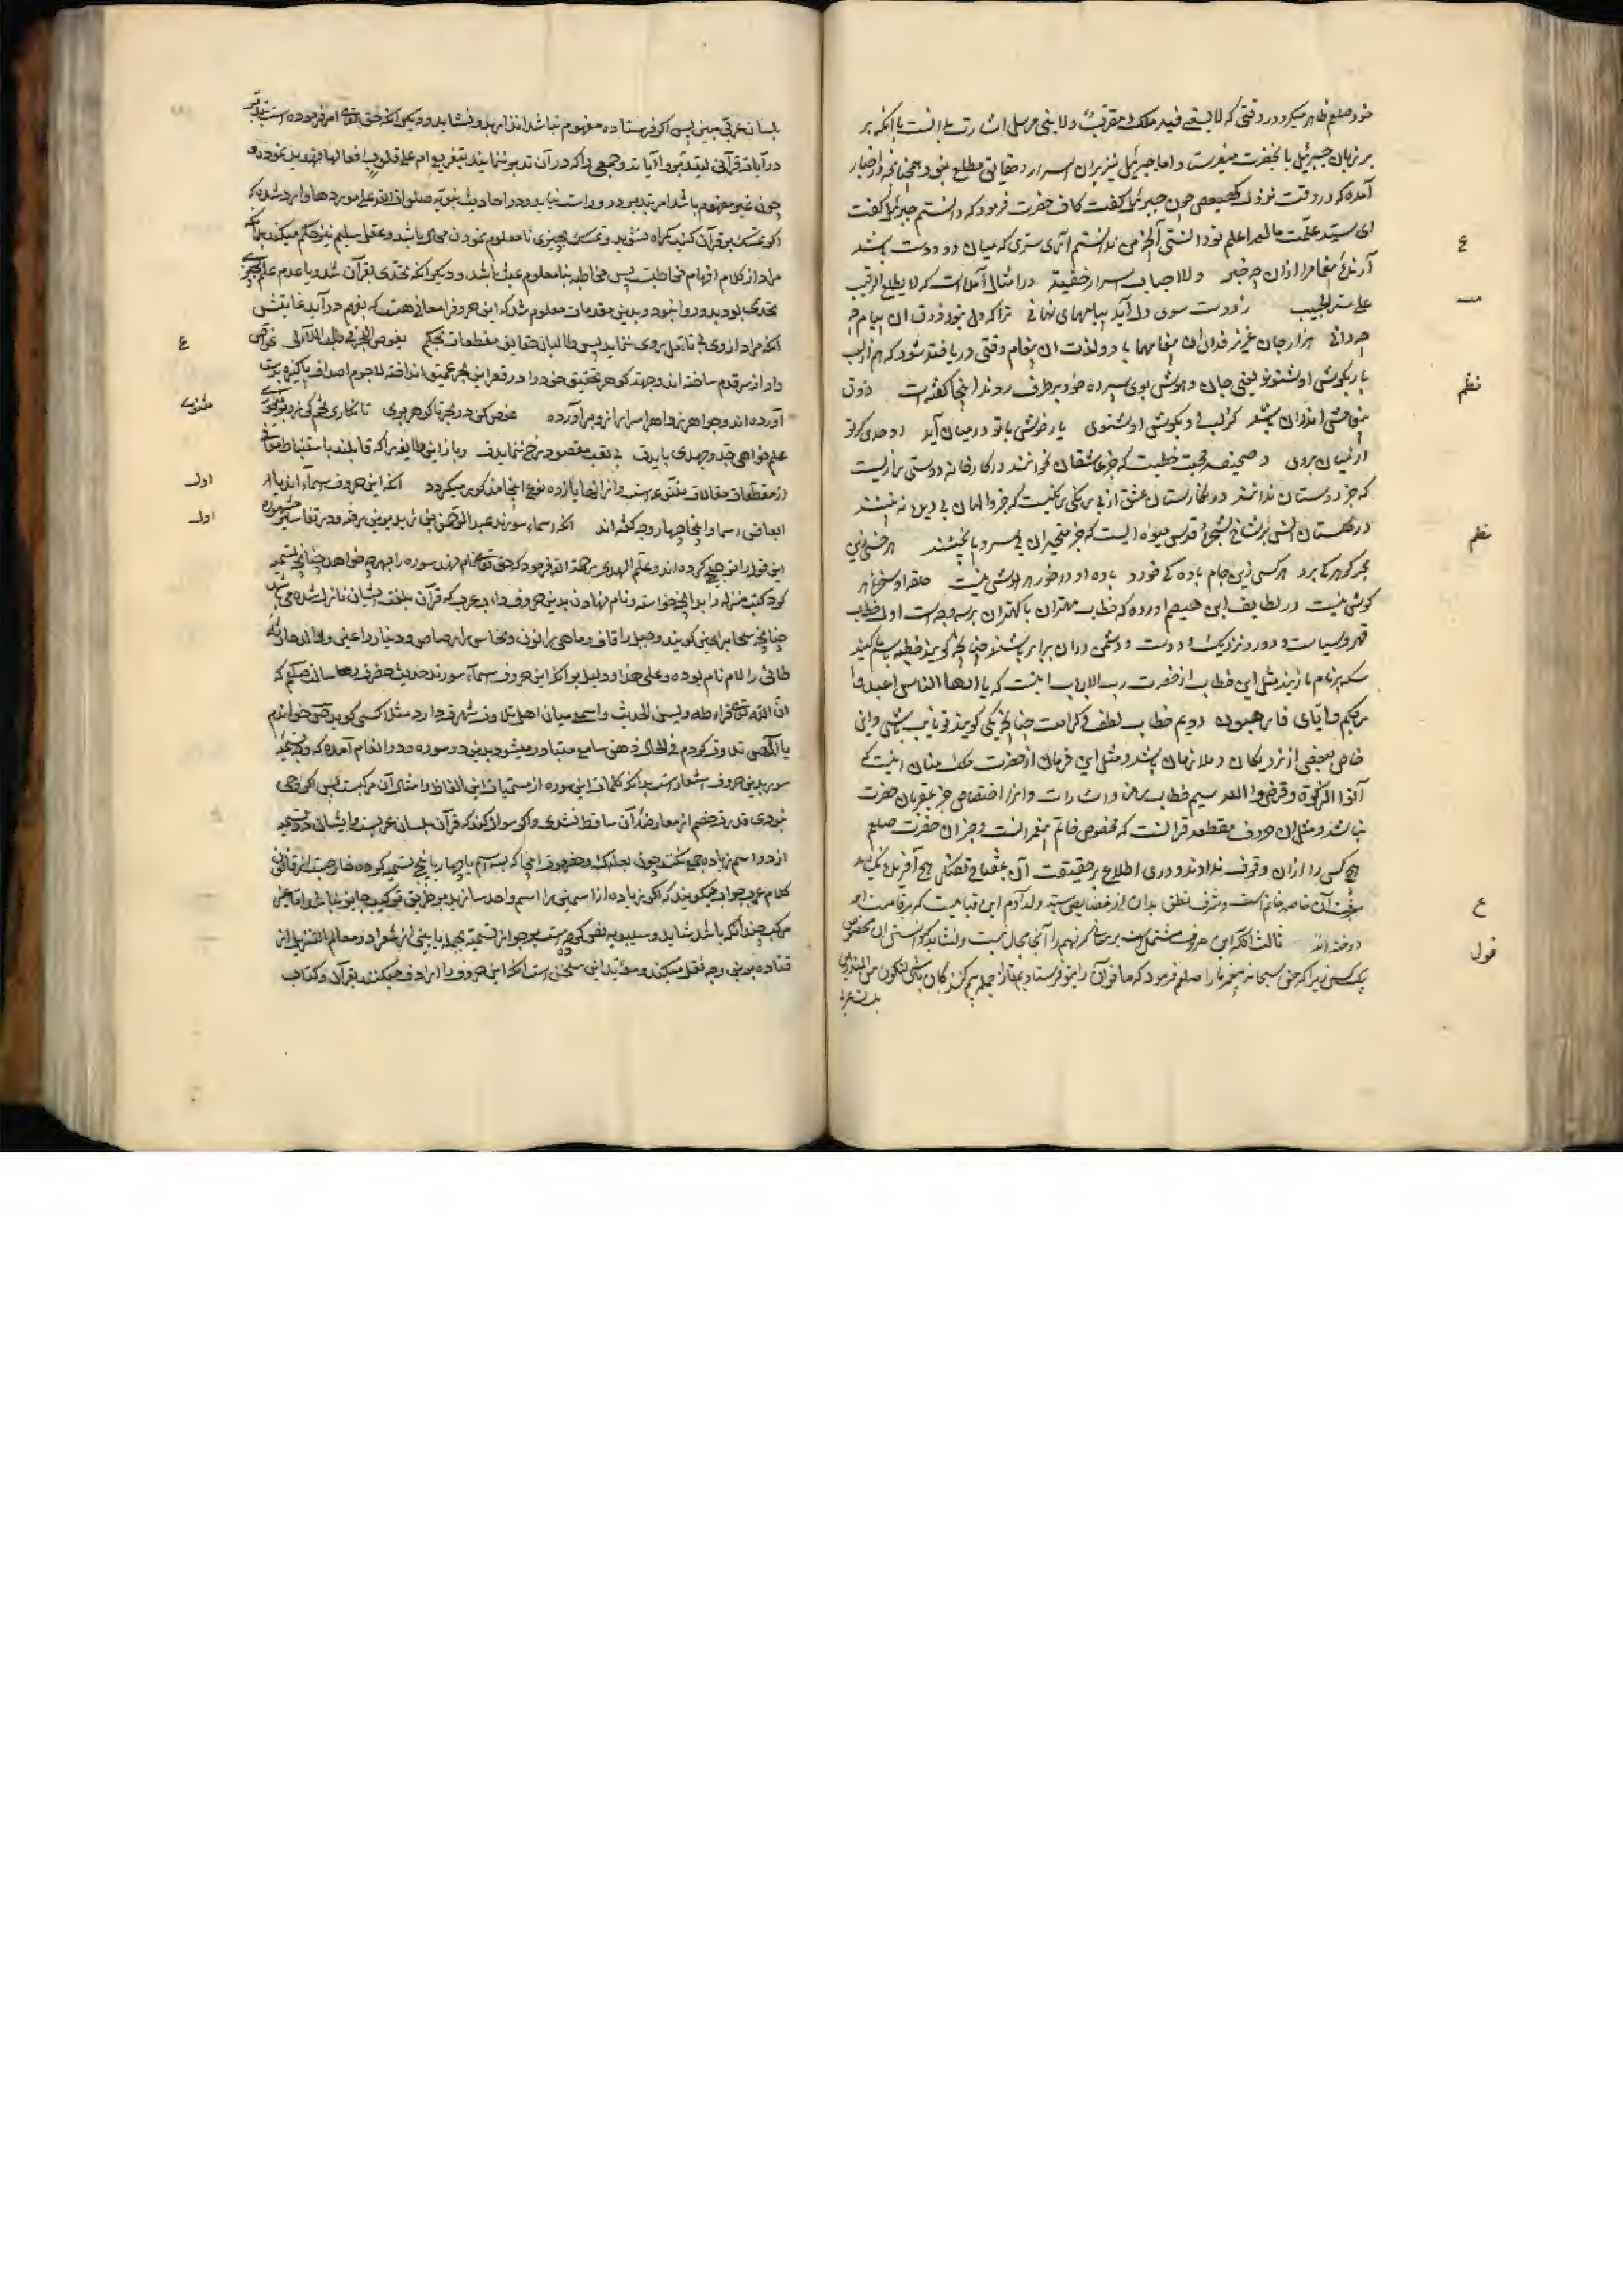 خود صلعم ظاهر میکرد در وقتی که لا یسعنی فیه ملک مقرب ولا نبی مرسل اشارت بدانست با آنکه بر
بر زبان جبرئیل بآنحضرت میفرستاد اما جبرئیل نیز بران اسرار و حقایق مطلع نبود همچنانچه در اخبار
آمده که در وقت نزول کهیعص چون جبرئیل گفت کاف حضرت فرمود که دانستم جبرئیل گفت
ای سید علمت ما لم اعلم تو دانستی آنچه من ندانستم آری سری که میان دو دوست باشد
ع
آرندهٔ پیغام را ازان چه خبر ولاحباب اسرار خفیة در امثال آمده است که لا یطلع الرقیب
علی سر الحبیب ز دوست سوی دل آید پیامهای نهانی ترا که دل نبود ذوق آن پیام چه
چه دانی هزار جان عزیز فدای آن پیغامها باد ولذت آن پیغام وقتی دریافته شود که هم از لب
یار بگوش او شنود یعنی جان و هوش بوی سپرده خود بر طرف روند اینجا گفته است ذوق
نظم
پیغامش اندران باشد کز لب وی بگوش او شنوی یار خوش با تو در میان آید
از میان بروی و صحیفه محبت خطیست که جز عاشقان نخوانند در کارخانه دوستی رازیست
که جز دوستان ندانند در نگارستان عشق از بی رنگی رنگیست که جز والهان بی دیده نه بینند
در گلستان انس بر شاخ شجرهٔ قدس میوه ایست که جز متحیران بی سر و پا نچشند هر خسی زین
نظم
بحر گوهر کی برد هر کسی زین جام باده کی خورد باده او در خور هر هوش نیست حلقه او سخره هر
گوش نیست در لطایف ابن هیصم آورده که خطاب مهتران با کهتران بر سه وجه است اول خطاب
قهر و سیاست و دور و نزدیک و دوست و دشمن دران برابر باشند چنانچه گویند خطبه بنام کنید
سکه بر نام ما زنید مثل این خطاب از حضرت رب الارباب اینست که یا ایها الناس اعبدوا
ربکم و ایای فارهبون دویم خطاب لطف و کرامت چنانچه یکی گویند تو نایب باش و این
خاص ببعضی از نزدیکان و ملازمان باشد و مثل این فرمان از حضرت ملک منان اینست که
آتوا الزکوة و اقرضوا الله سیم خطاب برمز و اشارات و این را اختصاص جز بمقربان حضرت
نباشد و مثل این حروف مقطعه قرآنست که مخصوص خاتم پیغمبرانست و جز آن حضرت صلعم
هیچ کس را ازان وقوف نداده اند و دوری اطلاع بر حقیقت آن
معرفت آن خاصه خاتم است و شرف نطق بدان از خصایص سید ولد آدم این قباییست که بر قامت او
ع
دوخته اند ثالثا آنکه این حروف مشتمل است بر معانی که فهم را آنجا مجال نیست
قول
یک کس زیرا که حق سبحانه پیغمبر ما را صلعم فرمود که ما قرآن را بتو فرستادیم تا از جمله بیم کنندگان باشی لتکون من المنذرین
بلسان عربی
بلسان عربی مبین پس اگر فرستاده مفهوم نباشد انذار بدو نشاید و دیگر آنکه حق تعالی امر فرموده است بتدبر
در آیات قرآنی لیتدبروا آیاته و جمعی را که در آن تدبر ننمایند بتقریع ام علی قلوب اقفالها تهدید نموده و
چون غیر مفهوم باشد امر بتدبر درو راست نیاید و در احادیث نبویه صلوات الله علی موردها وارد شده که
اگر تمسک بقرآن کنید گمراه نشوید و تمسک بچیزی نامعلوم نمودن محال باشد و عقل سلیم نیز حکم میکند بر آنکه
مراد از کلام افهام مخاطبست پس مخاطبه بنامعلوم عبث باشد و دیگر آنکه تحدی بقرآن شد و با عدم علم بچیزی
تحدی بدو روا نبود و بدین مقدمات معلوم شد که این حروف را معانی هست که بفهم در آید غایتش
آنکه مراد از وی بی تأمل روی ننماید پس طالبان حقایق مقطعات بحکم یغوص البحر فی طلب اللآلی غواص
ع
وار از سر قدم ساخته اند و جهة گوهر تحقیق خود را در قعر این بحر عمیق انداخته لاجرم اصداف پاکیزه بدست
آورده اند و جواهر زواهر اسرار ازو بر آورده غوص کن در بحر تا گوهر بری
مثنوی
علم خواهی جد و جهدی بایدت بی تعب مقصود رخ ننمایدت و باز این طایفه را که قایلند باستنباط معانی
از مقطعات مقالات متنوعه است و از آنها یازده نوع اینجا مذکور میگردد آنکه این حروف اسماء اند یا
اول
ابعاض اسما و اینجا چهار وجه گفته اند آنکه اسماء سورند عبدالرحمن ابن زید بدین رفته و در تفاسیر مشهوره
اول
این قول را ترجیح کرده اند و علم الهدی رحمه الله فرمود که حق تعالی نام نهد سوره را بهرچه خواهد چنانچه تسمیه
کرد کتب منزله را بدانچه خواست و نام نهادن بدین حروف داب عرب که قرآن بلغت ایشان نازل شده می باشد
چنانچه سحاب را عین گویند و جبل را قاف و ماهی را نون و نحاس را صاد و دینار را عین و والد حارثهٔ
طائی را لام نام بوده و علی هذا و دلیل بر آنکه این حروف اسماء سورند حدیث حضرت رسالت صلعم که
ان الله تعالی قرء طه و یس الحدیث و اسم ص میان اهل تلاوت شهرتی دارد مثلا کسی گوید ص خواندم
یا المص تلاوت کردم فی الحال ذهن سامع متبادر میشود بدین دو سوره و در انعام آمده که وجه تسمیه
سور بدین حروف اشعار است بدانکه کلمات این سوره از مسمیات این الفاظ و امثال آن مرکبست پس اگر وحی
نبودی قدرت خصم از معارضهٔ آن ساقط نشدی و اگر سوال کنند که قرآن بلسان عربیست و ایشان در تسمیه
از دو اسم زیاده جمع نکنند چون بعلبک و حضرموت و اینجا که بسه اسم یا چهار یا پنج تسمیه کرده خارجست از قانون
کلام عرب جواب میگویند که اگر زیاده از اسمین را اسم واحد سازند بر طریق ترکیب جایز نباشد اما غیر
مرکب چندانکه باشد شاید و سیبویه نص کرده است بر جواز تسمیه بجمله یا بیتی از شعر و در معالم التنزیل از
قتاده بدین وجه نقل میکند و مؤید این سخن است آنکه این حروف را ارداف میکنند بقرآن و کتاب